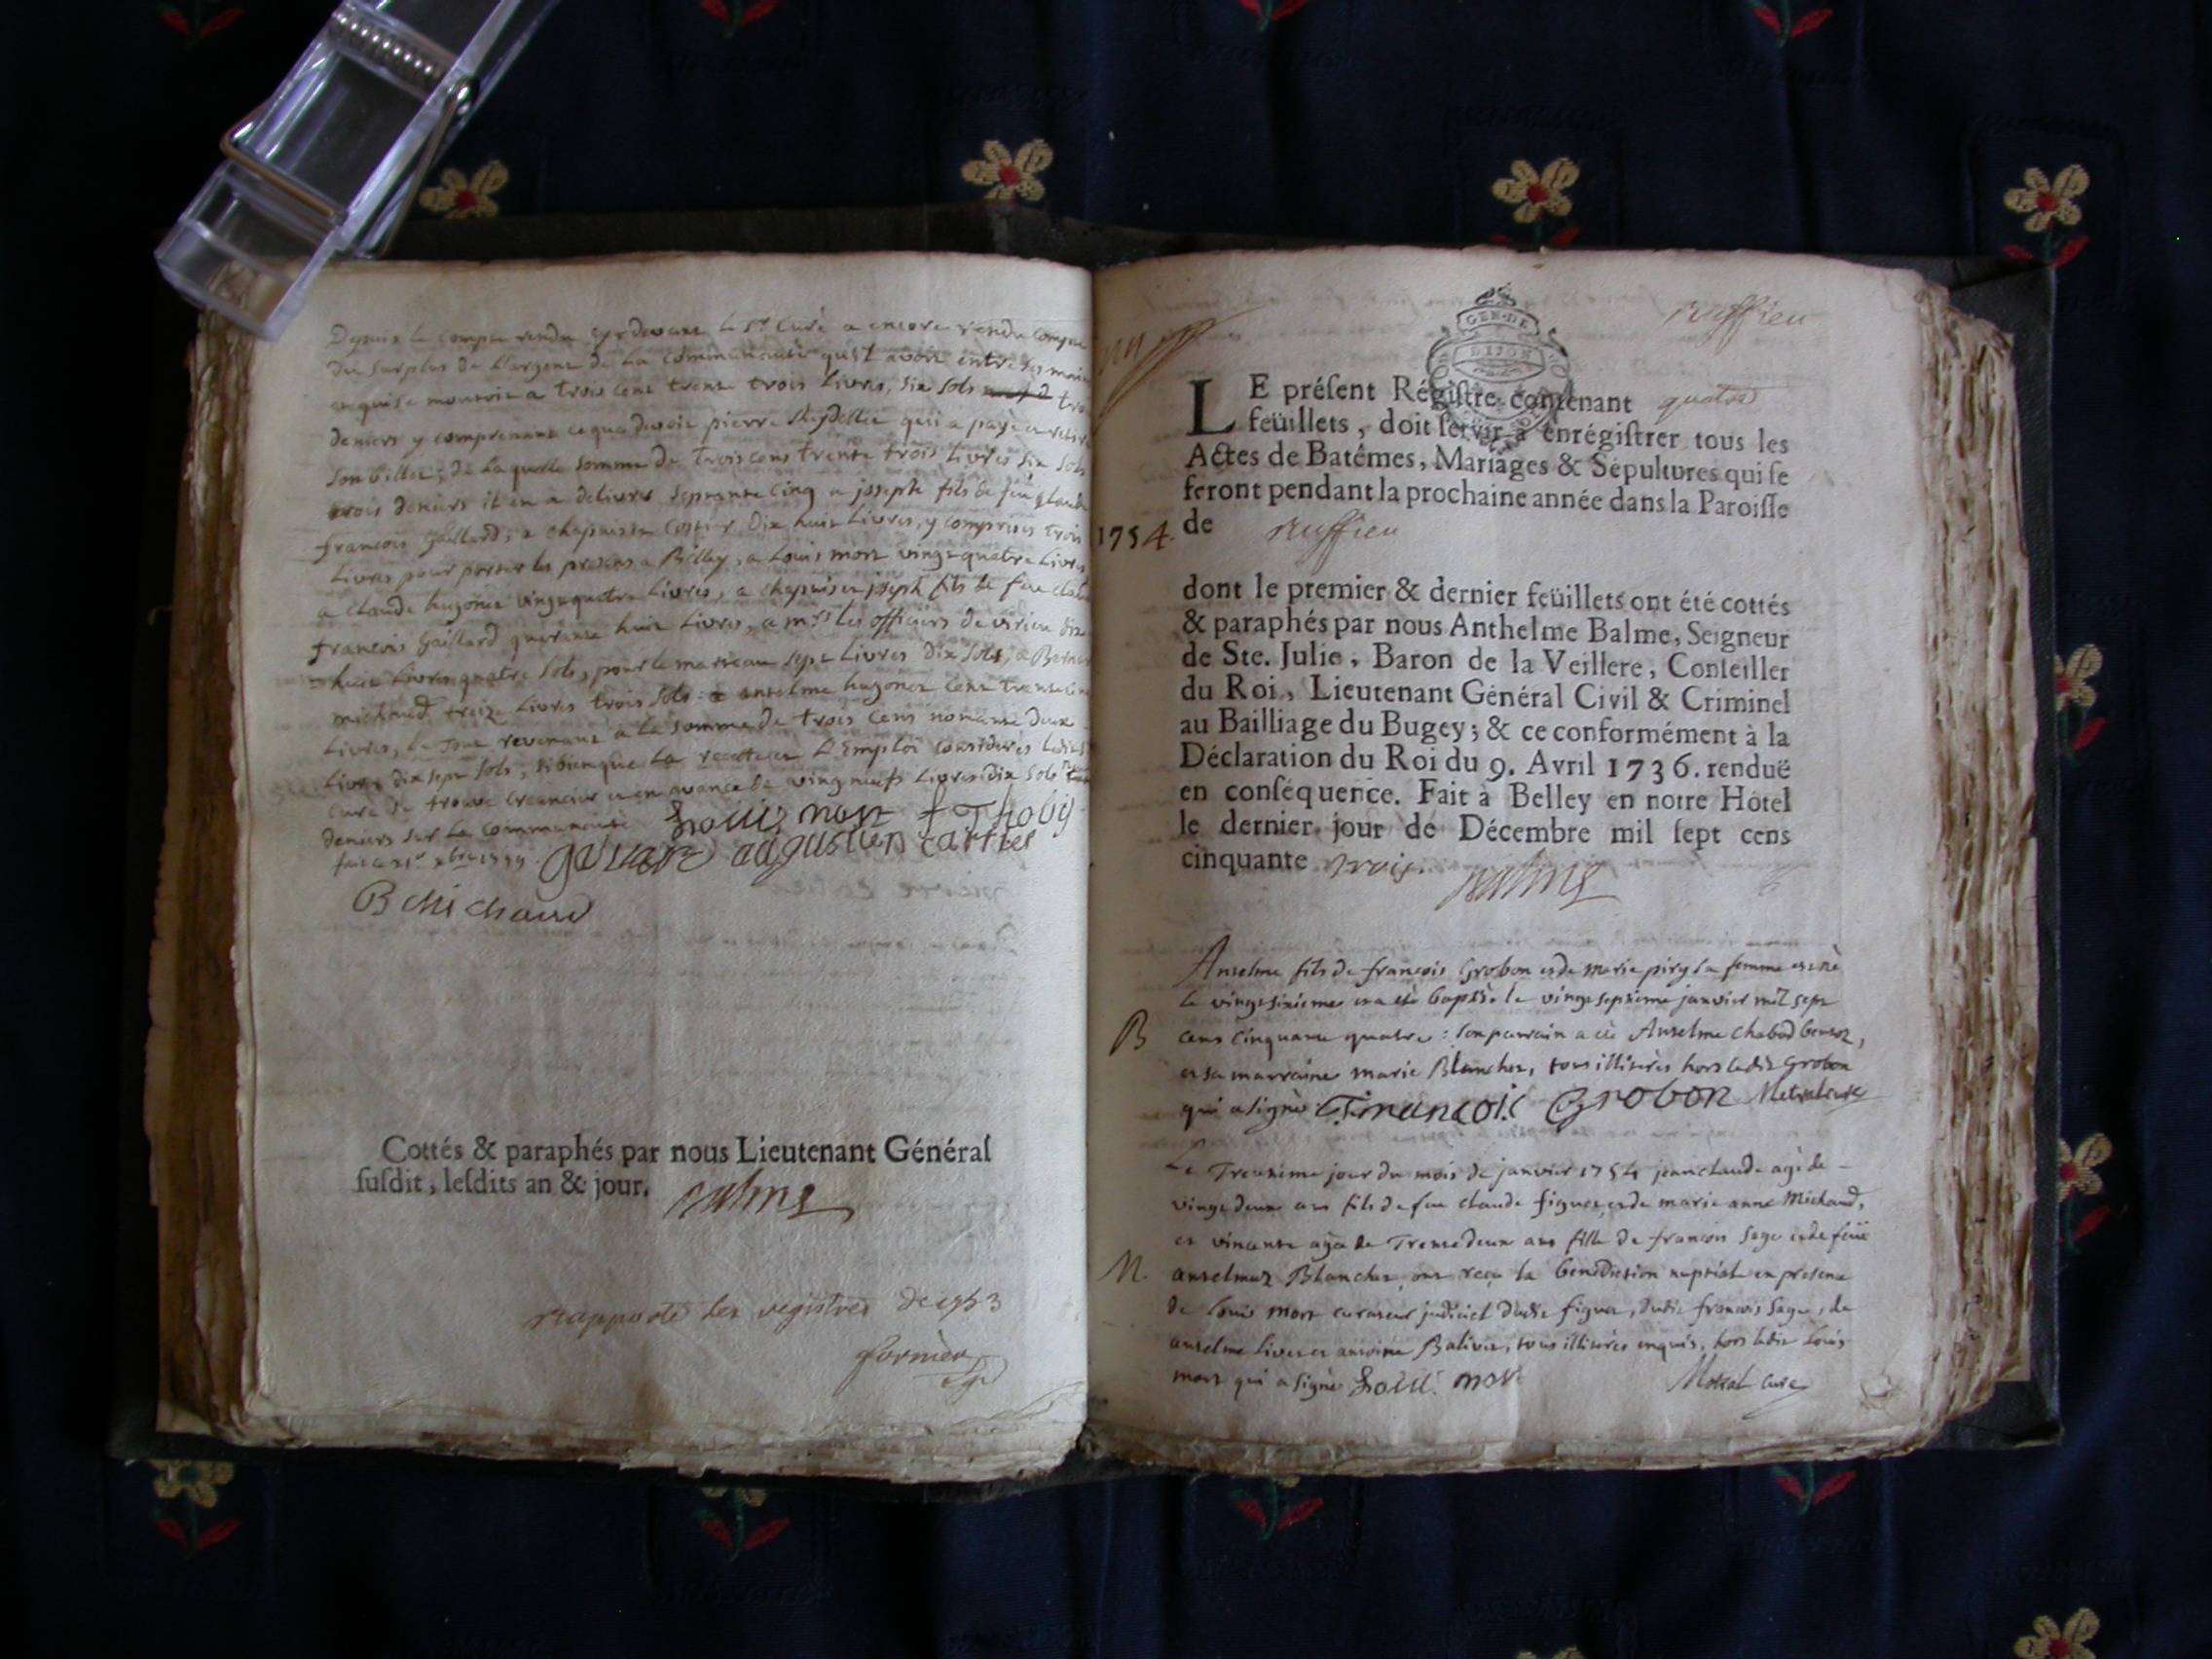 Depuis le compte rendu cy devant le Sr Curé a encore rendu compte
du surplus de l'argent de la communauté qu'il avoit entre ses mains
ce qui se montoit a trois cent trente trois livres, six sols trois
deniers y comprenant ce que devoit pierre qui a payé et retiré
son billet; de laquelle somme de trois cens trente trois livres six sols
trois deniers il en a delivré septante cinq a joseph fils de feu Claude
francois Gaillard, a chapuis dix huit livres, y compris trois
livres pour porter les presens a Belley, a Louis mort vingt quatre livres
a Claude hugonet vingt quatre livres, a joseph fils de feu
francois Gaillard quarante huit livres, a mrs les officiers de virieu dix
huit livres quatre sols, pour le marteau sept livres dix sols, a
michaud treize livres trois sols: a anselme hugonet cent trente
livres, le tout revenant a la somme de trois cens nonante deux
livres dix sept sols, si bien que la recette et l'emploi considerés ledit Sr
curé se trouve creancier et en avance de vingt neufs livres dix sols
deniers sur la communauté Louis mort
fait ce adgustien cartier
B Michaud
Cottés & paraphés par nous Lieutenant Général
susdit, lesdits an & jour. Balme
rapporté les registres de 1753
1754
Ruffieu
GEN. DE
DIJON
LE présent Régistre contenant quatre
feüillets, doit servir à enrégistrer tous les
Actes de Batêmes, Mariages & Sépultures qui se
feront pendant la prochaine année dans la Paroisse
de Ruffieu
dont le premier & dernier feüillets ont été cottés
& paraphés par nous Anthelme Balme, Seigneur
de Ste. Julie, Baron de la Veillere, Conseiller
du Roi, Lieutenant Général Civil & Criminel
au Bailliage du Bugey; & ce conformément à la
Déclaration du Roi du 9. Avril 1736. renduë
en conséquence. Fait à Belley en notre Hôtel
le dernier jour de Décembre mil sept cens
cinquante trois. Balme
Anselme fils de francois Grobon et de marie piry sa femme est né
le vingt sixieme et a eté baptisé le vingt septieme janvier mil sept
B cens cinquante quatre: son parrain a eté Anselme Chabod
et sa marraine marie Blanchet, tous illiterés hors ledit Grobon
qui a signé Francois Grobon
Le Trentieme jour du mois de janvier 1754 jean claude agé de
vingt deux ans fils de feu claude figuet, et de marie anne Michaud,
et vincente agée de Trente deux ans fille de francois Sage et de feüe
M. anselmaz Blanchet, ont reçu la benediction nuptiale en presence
de Louis mort curateur judiciel dudit figuet, dudit francois Sage, de
anselme livet et antoine Balivet, tous illiterés enquis, hors ledit Louis
mort qui a signé Louis mort curé